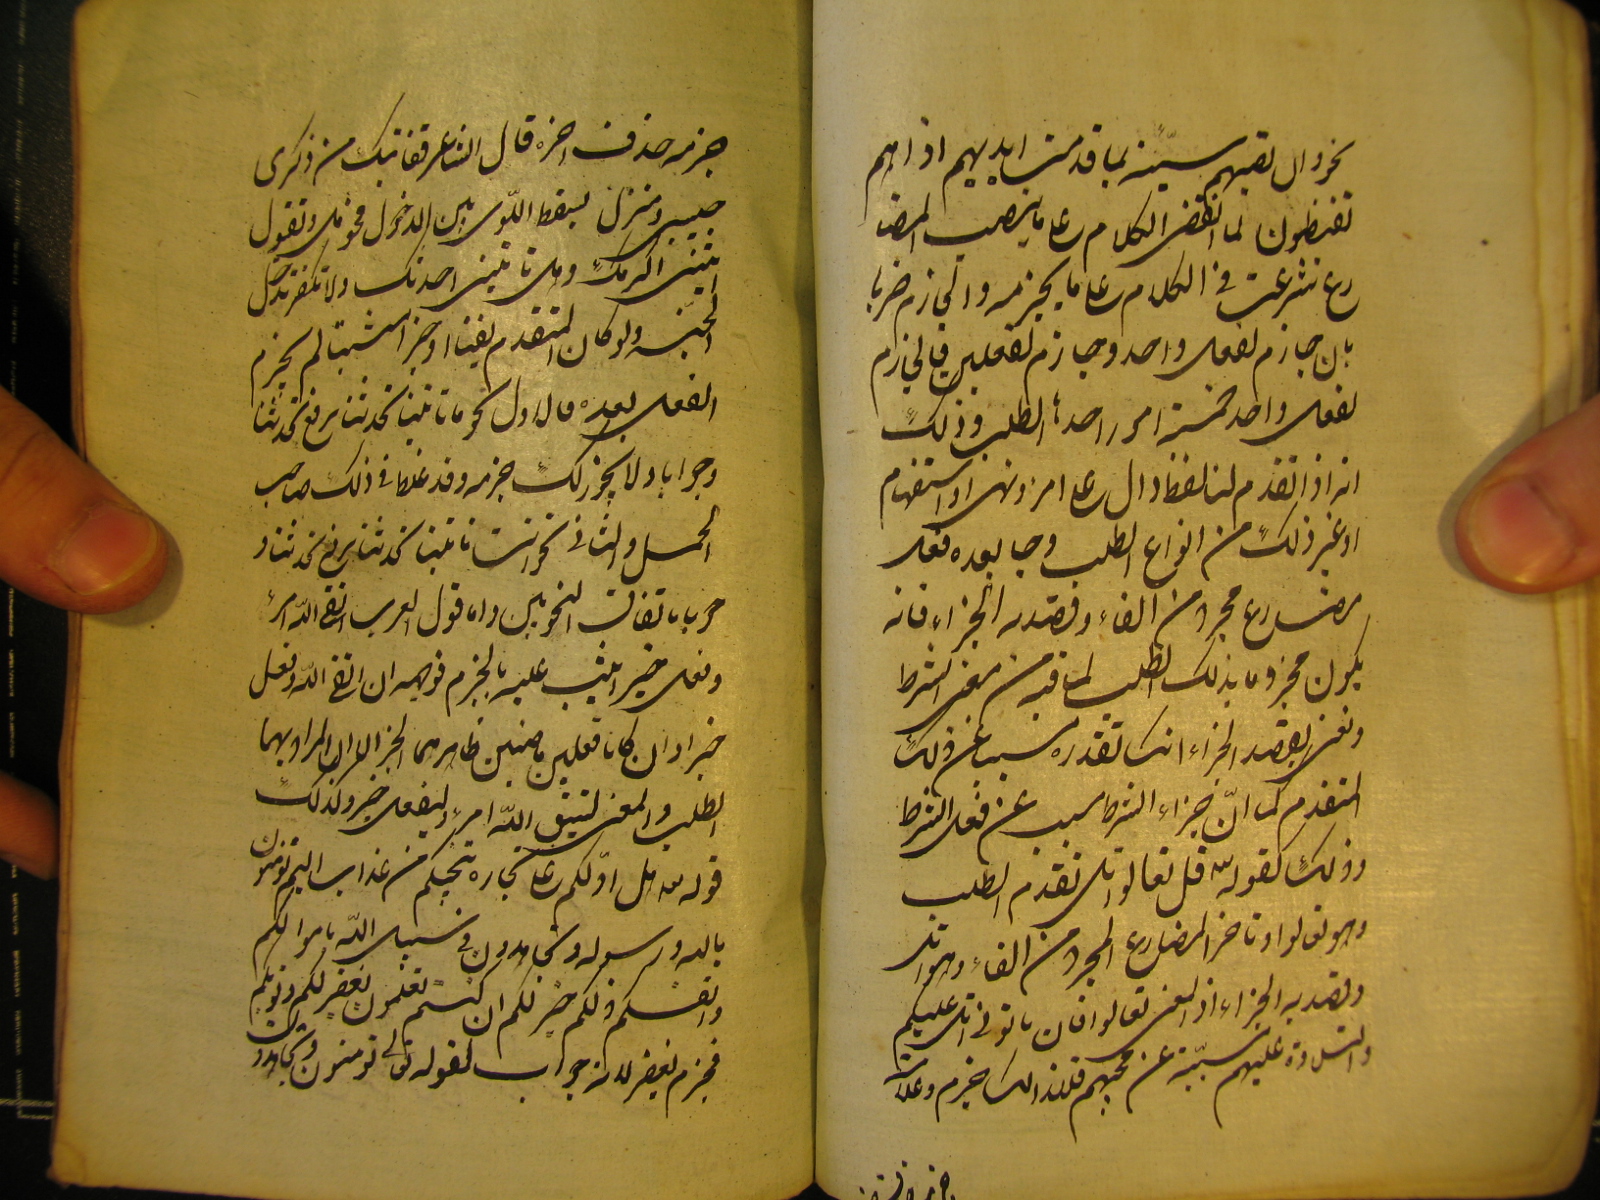 نحو وان تصبهم سيئة بما قدمت ايديهم اذا هم
يقنطون لما انقضى الكلام على ما ينصب المضا
رع شرعت في الكلام على ما يجزمه والجازم ضربا
ن جازم لفعل واحد وجازم لفعلين فالجازم
لفعل واحد خمسة امور احدها الطلب وذلك
انه اذا تقدم لنا لفظ دال على امر او نهى او استفهام
او غير ذلك من انواع الطلب وجاء بعده فعل
مضارع مجرد من الفاء وقصد به الجزاء فانه
يكون مجزوما بذلك الطلب لما فيه من معنى الشرط
ونعنى بقصد الجزاء انك تقدره مسببا عن ذلك
المتقدم كما انّ جزاء الشرط مسبب عن فعل الشرط
وذلك كقوله تع قل تعالوا اتل تقدم الطلب
وهو تعالوا وتاخر المضارع المجرد من الفاء وهو اتل
وقصد به الجزاء اذ المعنى تعالوا فان تاتوني اتل عليكم
والتلاوة عليهم مسبّبة عن مجيئهم فلذلك جزم وعلامة
جزمه حذف اخره قال الشاعر قفا نبك من ذكرى
حبيب ومنزل بسقط اللّوى بين الدخول فحومل وتقول
ائتنى اكرمك وهل تاتينى احدثك ولا تكفر تدخل
الجنّة ولو كان المتقدم نفيا او خبرا مثبتا لم يجزم
الفعل بعده فالاول نحو ما تاتينا تحدثنا برفع تحدثنا
وجوبا ولا يجوز لك جزمه وقد غلط في ذلك صاحب
الجمل والثانى نحو انت تاتينا تحدثنا برفع تحدثنا و
جوبا باتفاق النحويين واما قول العرب اتقى اللّه امرء
وفعل خيرا يثب عليه بالجزم فوجهه ان اتقى اللّه وفعل
خيرا وان كانا فعلين ماضيين ظاهرهما الخبر الا ان المراد بهما
الطلب والمعنى ليتق اللّه امرء وليفعل خيرا وكذلك
قوله تع هل ادلّكم على تجارة تنجيكم من عذاب اليم تؤمنون
بالله ورسوله وتجاهدون في سبيل اللّه باموالكم
وانفسكم ذلكم خير لكم ان كنتم تعلمون يغفر لكم ذنوبكم
فجزم يغفر لانه جواب لقوله تعالى تومنون وتجاهدون